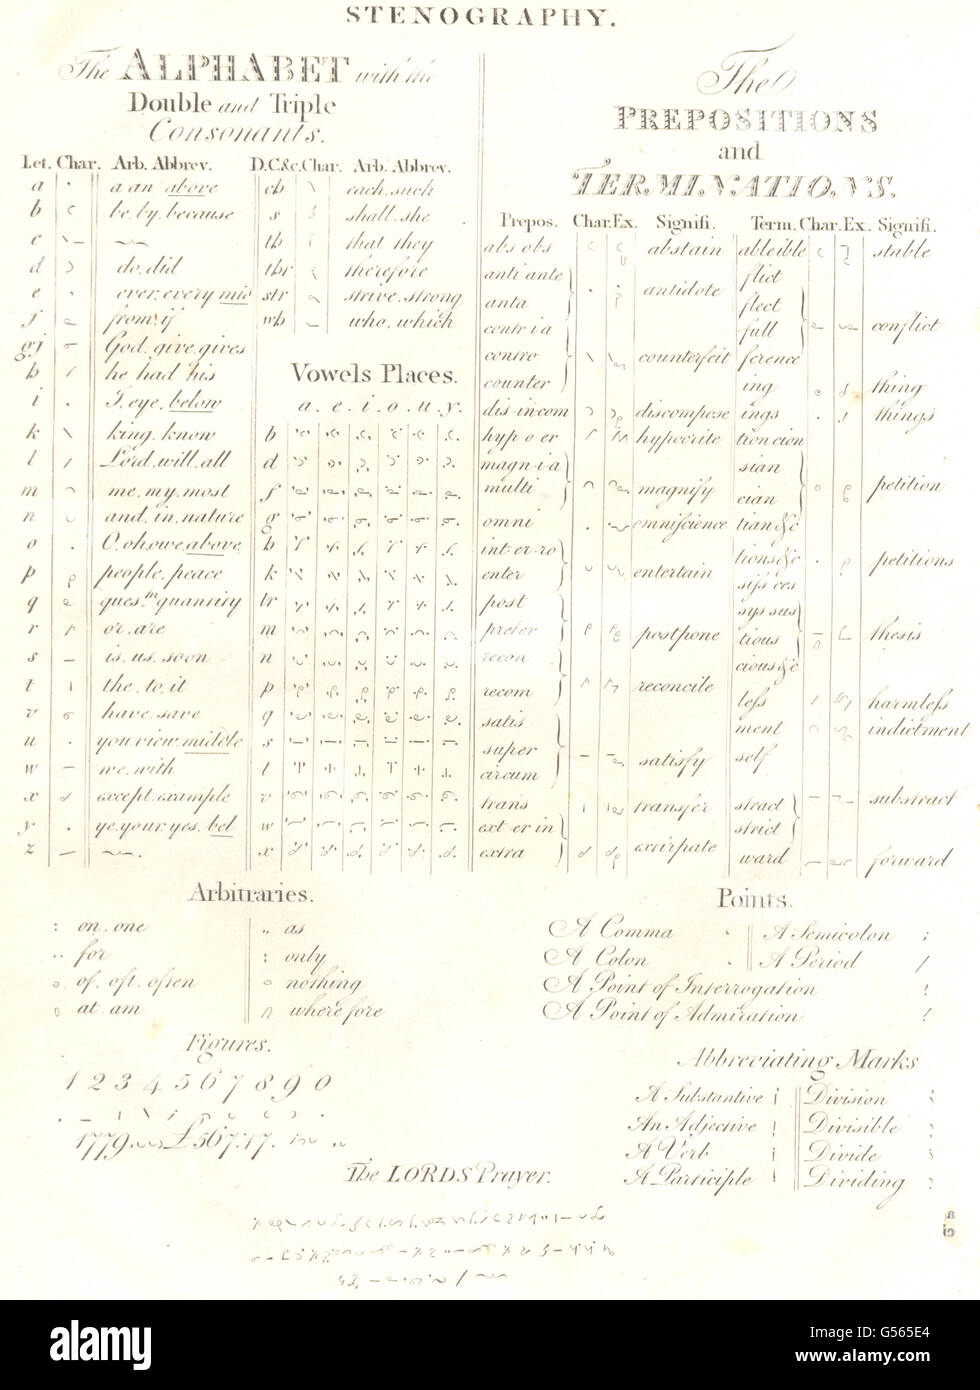 STENOGRAPHY.
The ALPHABET with the
Double and Triple
Consonants.
Let. Char. Arb. Abbrev. D.C.&c. Char. Arb. Abbrev.
a a an above
b be. by. because
c
d do. did
e ever. every mid
f from. if
gj God. give. gives
h he had his
i I. eye. below
k king. know
l Lord. will. all
m me. my. most
n and. in. nature
o O. oh. owe. above
p people. peace
q ques.tn quantity
r or. are
s is. us. soon
t the. to. it
v have. save
u you. view. middle
w we. with
x except. example
y ye. your. yes. bel
z
ch each. such
s shall. she
th that they
thr therefore
str strive. strong
wh who. which
Vowels Places.
a. e. i. o. u. y.
b
d
f
g
h
k
tr
m
n
p
q
s
t
v
w
x
The
PREPOSITIONS
and
TERMINATIONS.
Prepos. Char. Ex. Signifi. Term. Char. Ex. Signifi.
abs obs abstain
anti ante
anta antidote
contr i a
contro counterfeit
counter
dis-in com discompose
hyp o er hypocrite
magn-i-a
multi magnify
omni omniscience
int-er-ro
enter entertain
post
preter postpone
recon
recom reconcile
satis
super satisfy
circum
trans transfer
ext-er in
extra extirpate
able ible stable
flict
flect
full conflict
ference
ing thing
ings things
tion cion
sian
cian petition
tian &c
tions &c petitions
siss ces
sys sus
tious thesis
cious &c
less harmless
ment indictment
self
stract substract
strict
ward forward
Arbitraries.
: on. one
.. for
o of. oft. often
at. am
,, as
: only
o nothing
wherefore
Figures.
1 2 3 4 5 6 7 8 9 0
1779. £567:17.
Points.
A Comma
A Colon
A Semicolon ;
A Period /
A Point of Interrogation ?
A Point of Admiration !
Abbreviating Marks
A Substantive
An Adjective
A Verb
A Participle
Division
Divisible
Divide
Dividing
The LORDS Prayer.
a
alamy
Image ID: G565E4
www.alamy.com